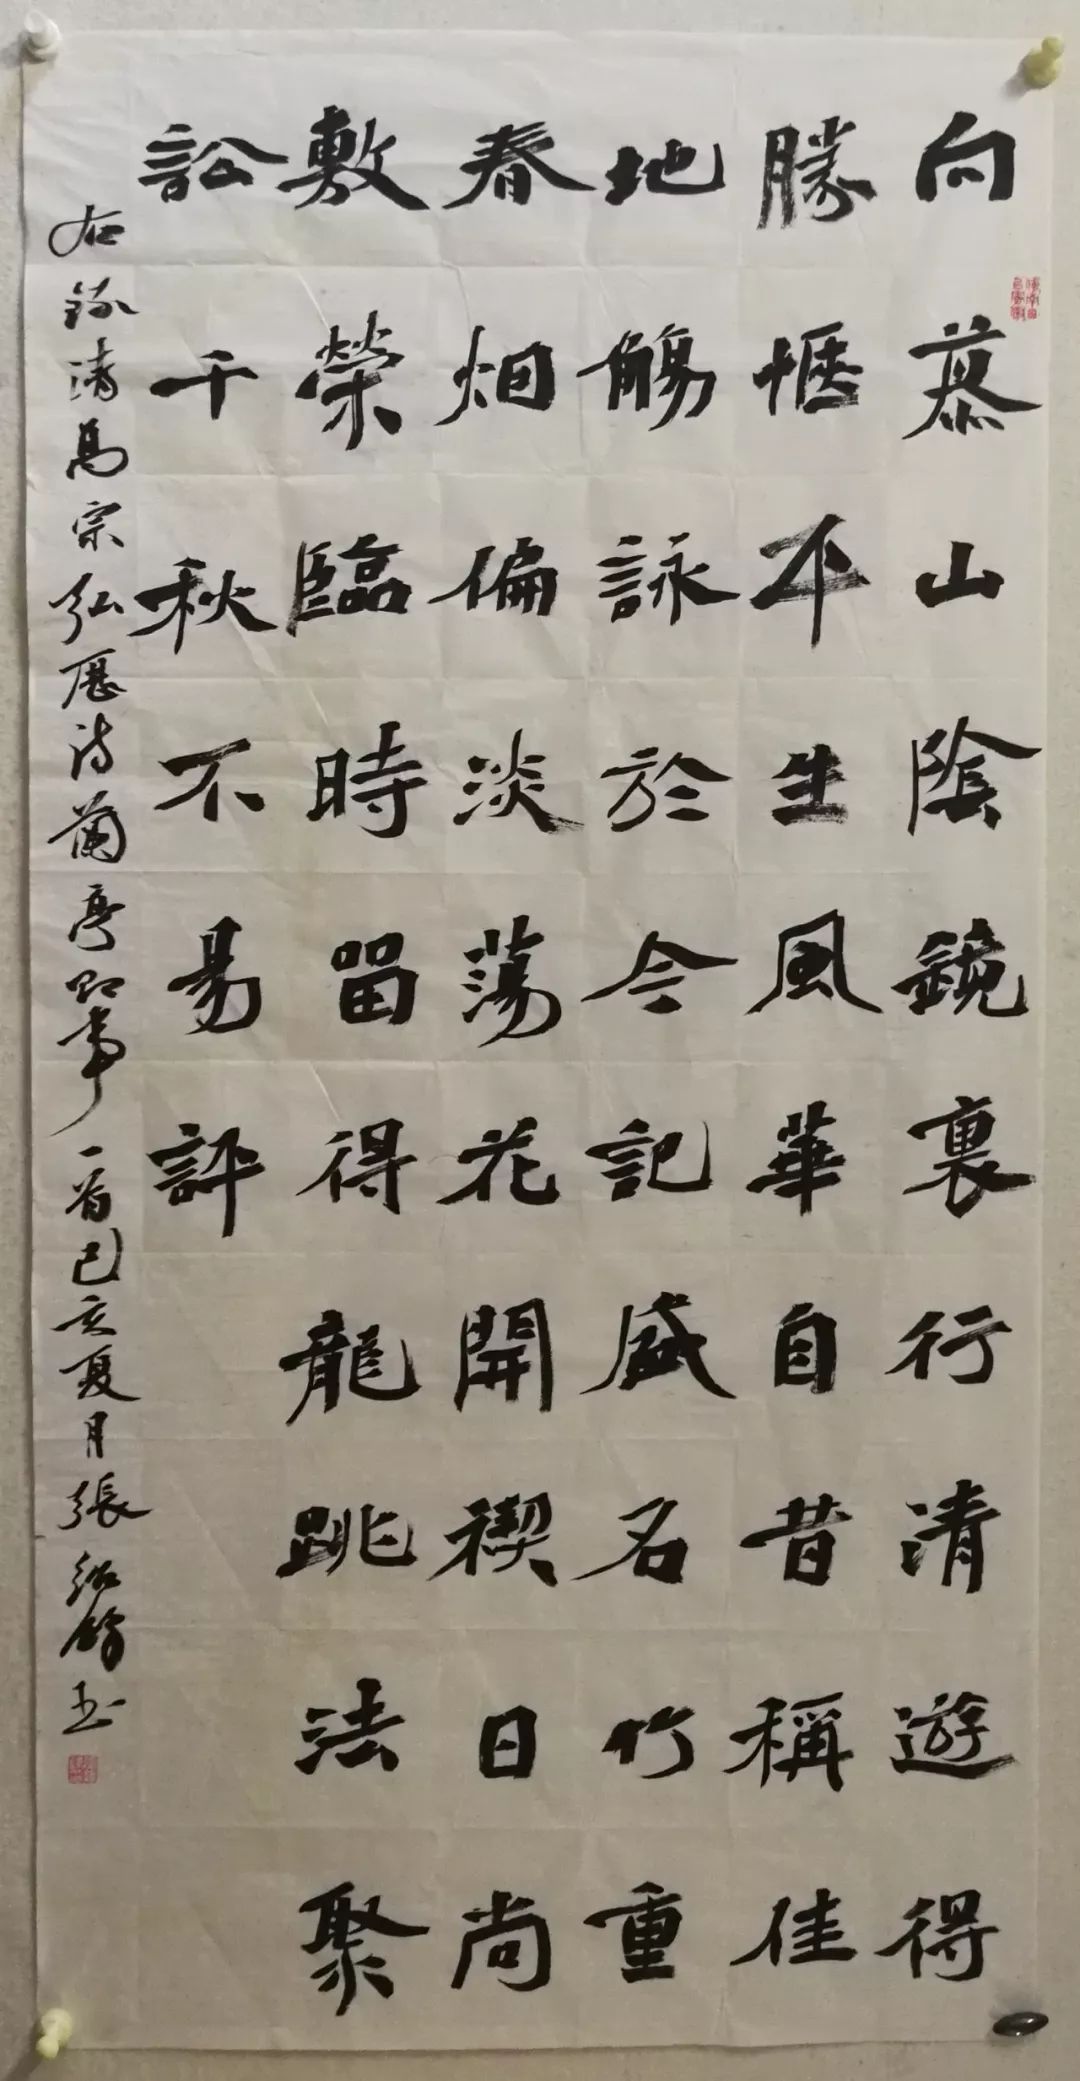 向慕山陰鏡裏行清遊得
勝愜平生風華自昔稱佳
地觴詠於今記盛名竹重
春烟偏淡蕩花開禊日尚
敷榮臨時留得龍跳法聚
訟千秋不易評
右錄清高宗弘歷詩蘭亭即事一首己亥夏月張